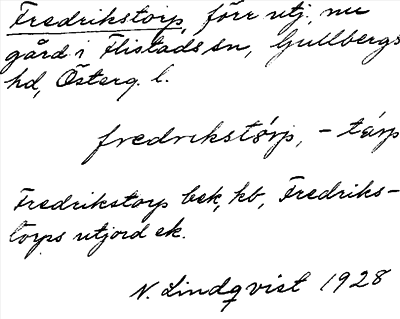 Fredrikstorp, förr utj., nu
gård i Flistads sn, Gullbergs
hd, Österg. l.
fredrikstórp, – tárp
Fredrikstorp bek, kb, Fredriks-
torps utjord ek.
N. Lindqvist 1928